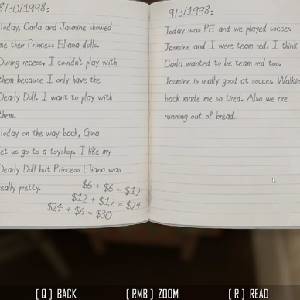 8/10/1998:
Today, Carla and Jasmine showed
me their Princess Eliana dolls.
During recess, I couldn't play with
them because I only have the
Dearly Doll. I want to play with
them.
Today on the way back, Gina
let us go to a toyshop. I like my
Dearly Doll but Princess Eliana was
really pretty.
$6 + $6 = $12
$12 + $12 = $24
$24 + $6 = $30
Today was P.E and we played soccer.
Jasmine and I were team red. I think
Carla wanted to be team red too.
Jasmine is really good at soccer. Walking
back made me so tired. Also we are
running out of bread.
[Q] BACK
[RMB] ZOOM
[R] READ